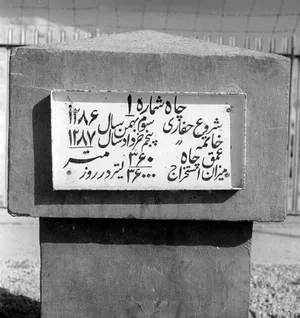 چاه شماره ۱
شروع حفاری سوم بهمن سال ۱۲۸۶
خاتمه // پنجم خرداد سال ۱۲۸۷
عمق چاه ۳۶۰ متر
میزان استخراج ۳۶۰۰۰ لیتر در روز